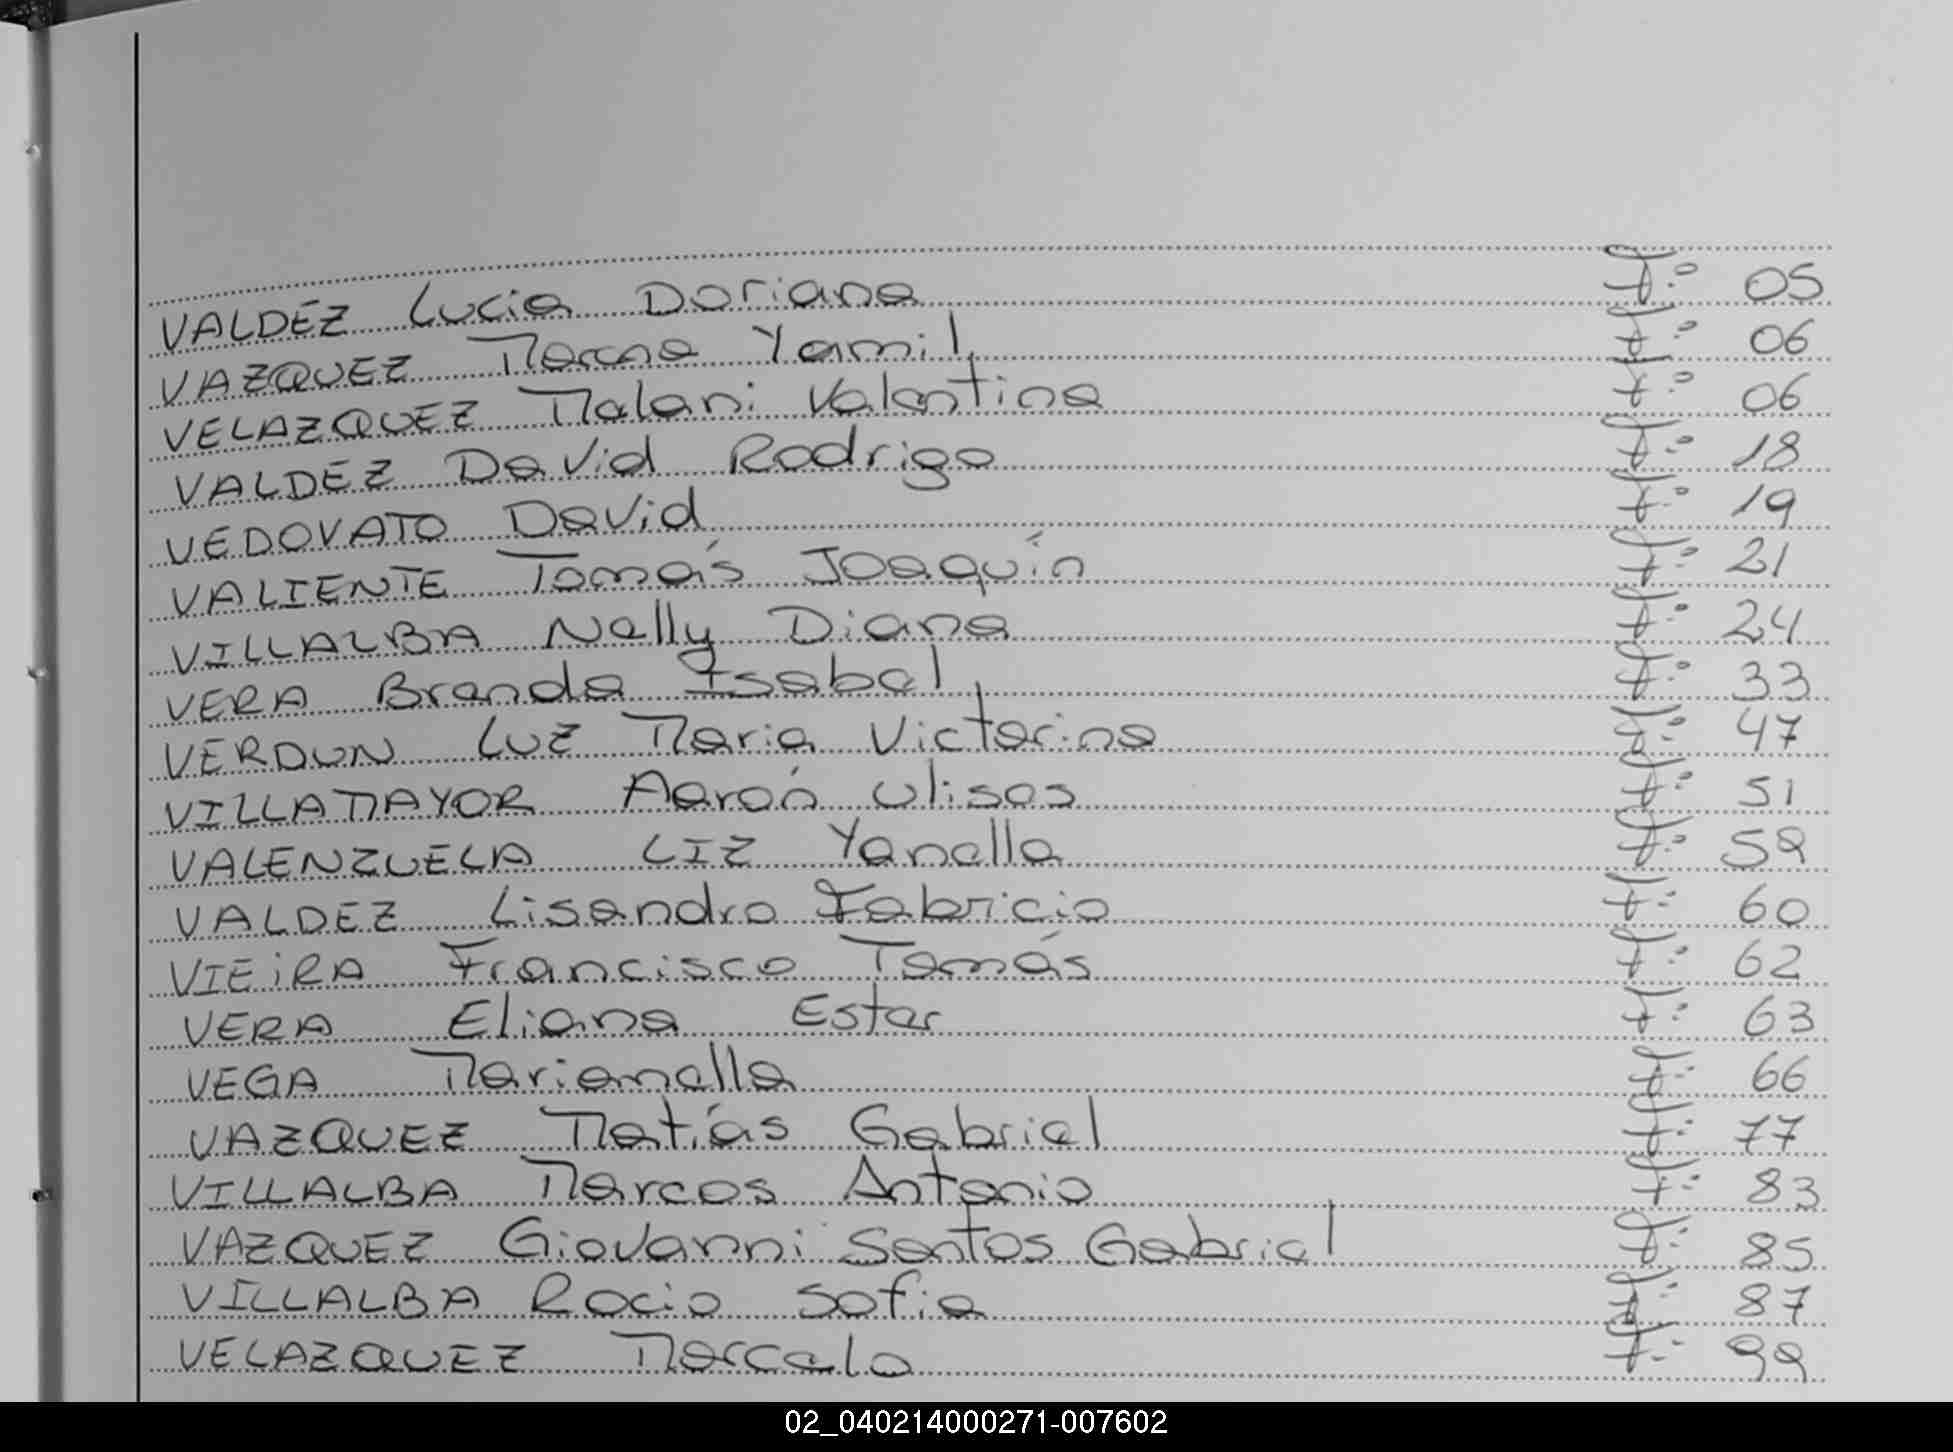 VALDÉZ Lucia Doriana F:º 05
VAZQUEZ Morena Yamil F:º 06
VELAZQUEZ Malani Valentina F:º 06
VALDÉZ David Rodrigo F:º 18
VEDOVATO David F:º 19
VALIENTE Tomás Joaquín F:º 21
VILLALBA Nelly Diana F:º 24
VERA Brenda Isabel F:º 33
VERDUN Luz Maria Victorina F:º 47
VILLAMAYOR Aarón Ulises F:º 51
VALENZUELA LIZ Yanella F:º 59
VALDEZ Lisandro Fabricio F:º 60
VIEIRA Francisco Tomás F:º 62
VERA Eliana Ester F:º 63
VEGA Marianella F:º 66
VAZQUEZ Matías Gabriel F:º 77
VILLALBA Marcos Antonio F:º 83
VAZQUEZ Giovanni Santos Gabriel F:º 85
VILLALBA Rocio Sofia F:º 87
VELAZQUEZ Marcelo F:º 99
02_040214000271-007602